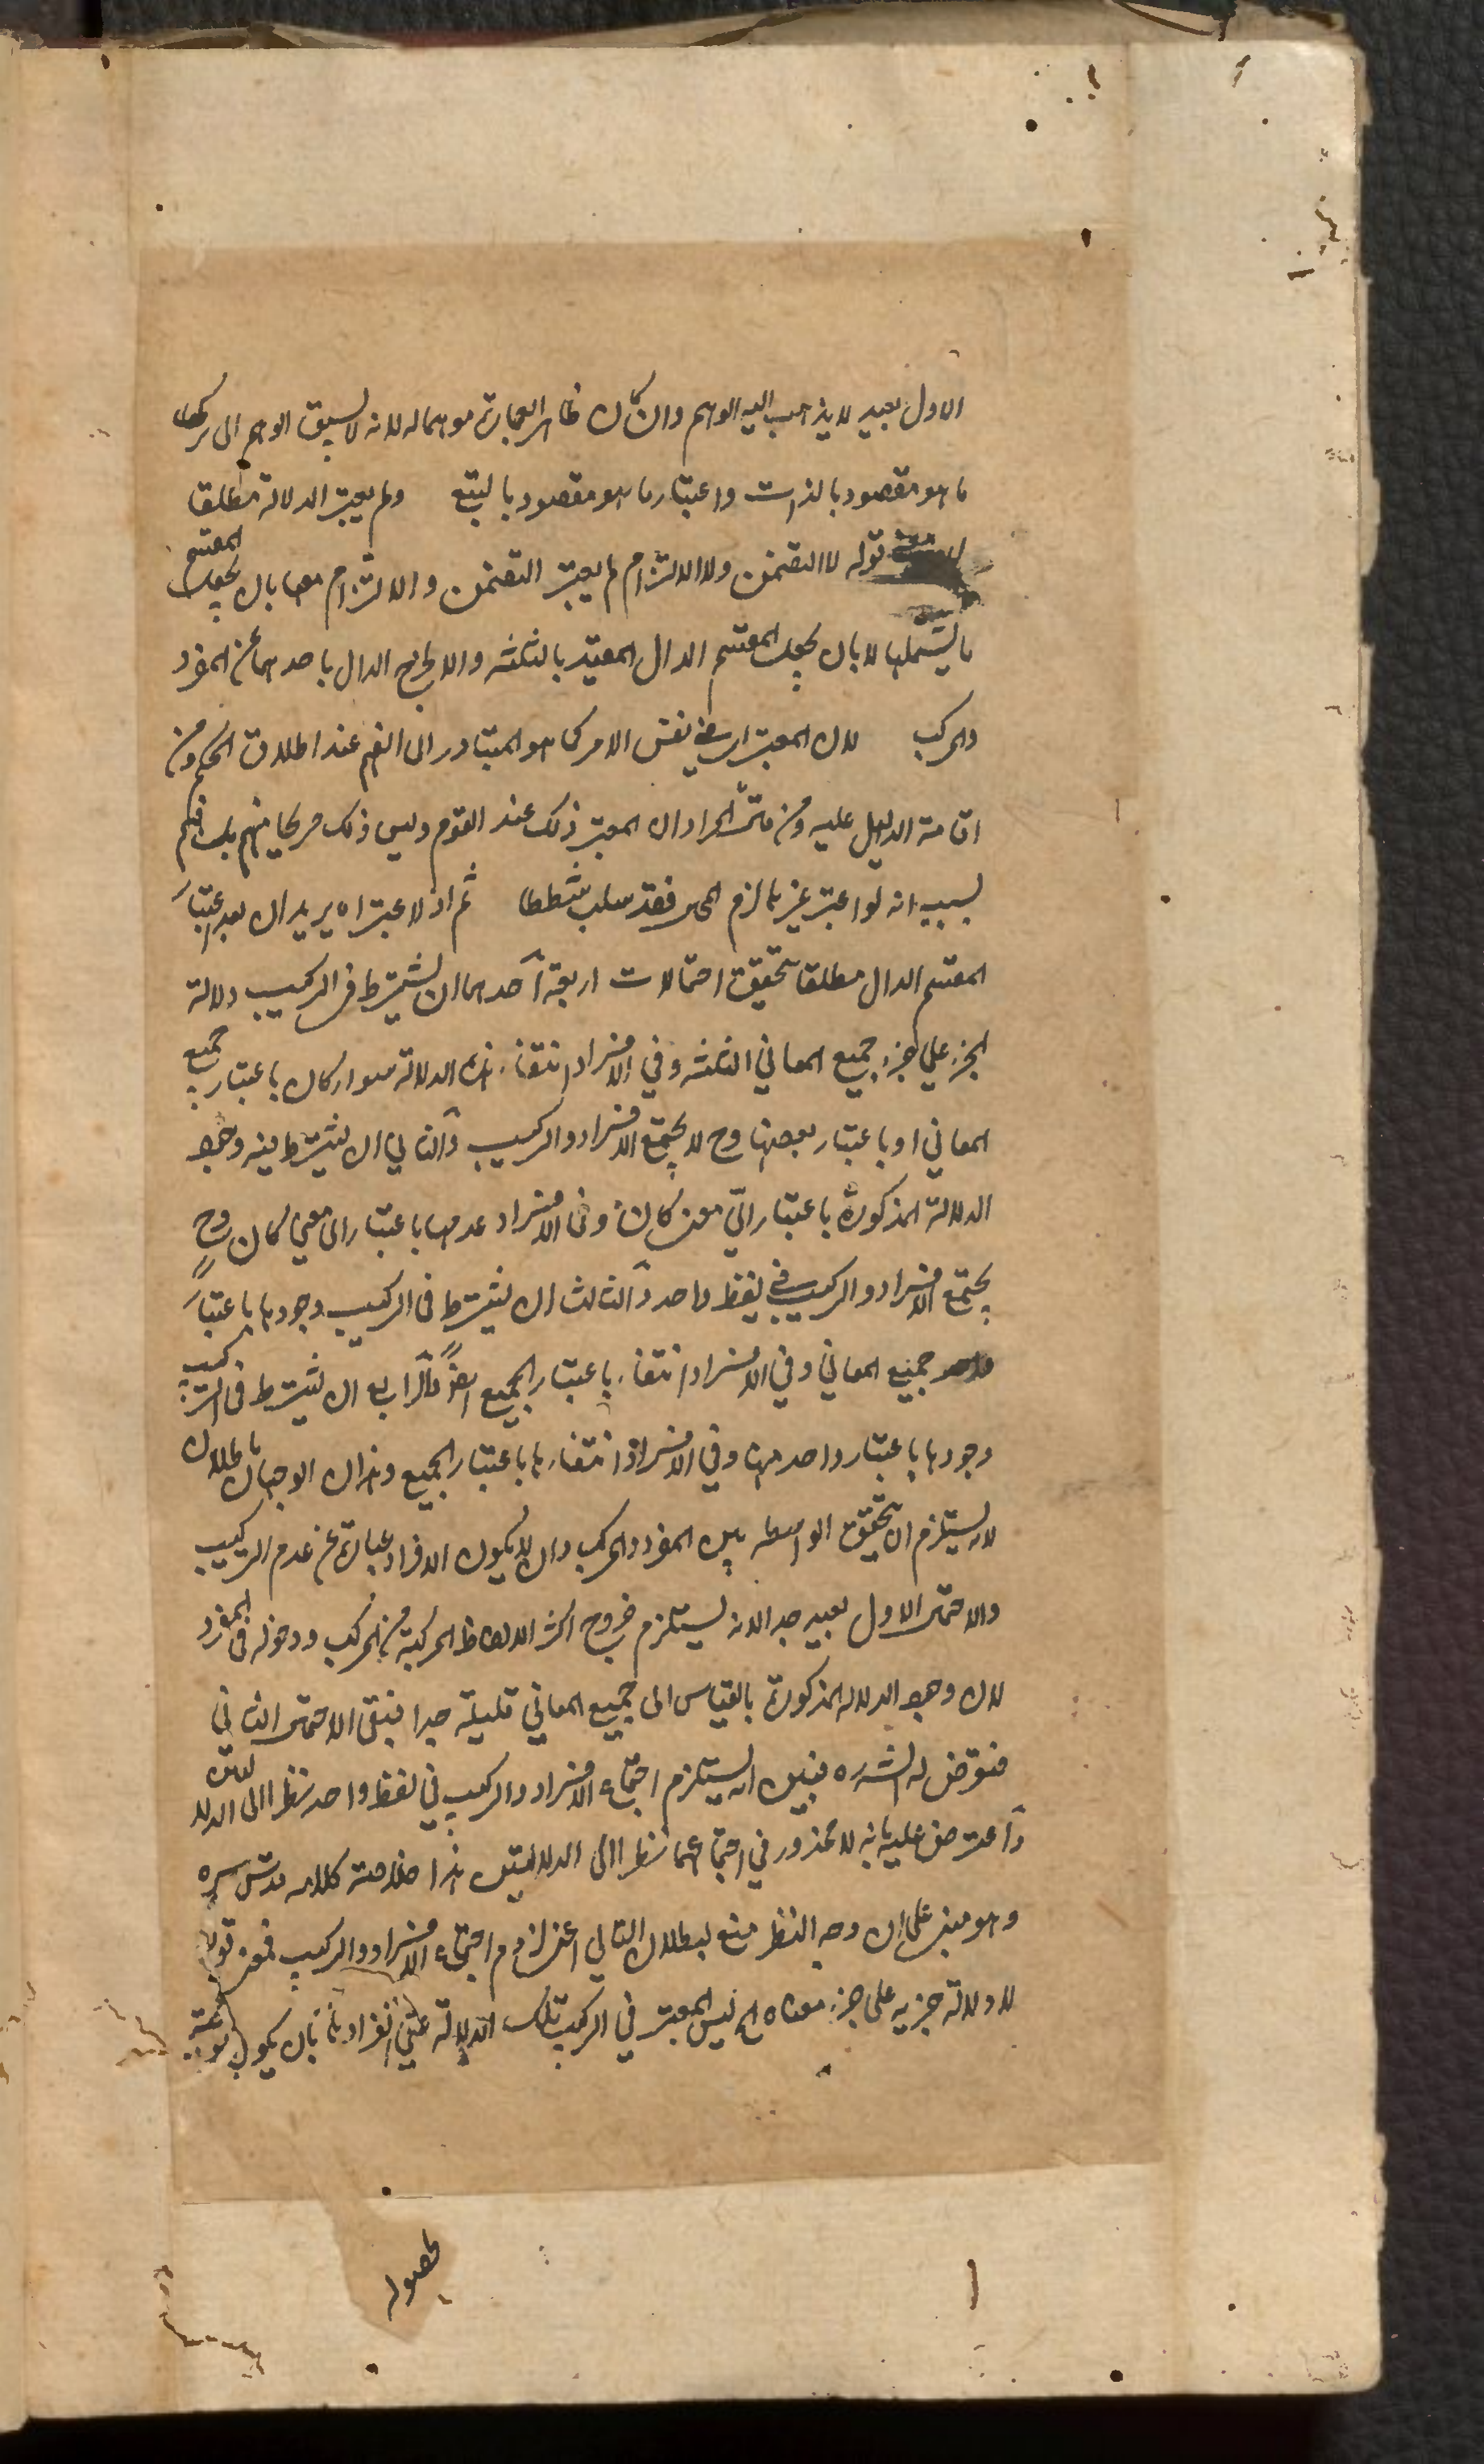 الاول بعيد لا يذهب اليه الوهم وان كان ظاهر العبارة موهما له لانه لا يسبق الوهم الى ترك
ما هو مقصود بالذات واعتبار ما هو مقصود بالتبع ولم يعتبر الدلالة مطلقا
قوله لا التضمن ولا الالتزام لم يعتبر التضمن والالتزام معها بان يجعل المقسم
ما يشملها لا بان يجعل المقسم الدال المقيد بالثلثه والا لخرج الدال باحدهما عن المفرد
والمركب لان المعتبر اى فى نفس الامر كما هو المتبادر الى الفهم عند اطلاق الحكم ومن
اقامة الدليل عليه ومن قال المراد ان المعتبر ذلك عند القوم وليس ذلك صريحا منهم بل فهم
بسبب انه لو اعتبر غيرها لزم المح فقد سلب شططا ثم اذا اعتبراه يريد ان بعد اعتبار
المقسم الدال مطلقا تحقق احتمالات اربعة احدهما ان يشترط فى التركيب دلالة
الجزء على جزء جميع المعاني الثلثه وفي الافراد انتفاء هذه الدلالة سواء كان باعتبار جميع
المعاني او باعتبار بعضها وح لا يجتمع الافراد والتركيب والثاني ان يشترط فيه وجود
الدلالة المذكورة باعتبار اي معنى كان وفى الافراد عدمها باعتبار اى معنى كان وح
يجتمع الافراد والتركيب فى لفظ واحد والثالث ان يشترط فى التركيب وجودها باعتبار
جميع المعاني وفي الافراد انتفاء باعتبار الجميع ايضا والرابع ان يشترط فى التركيب
وجودها باعتبار واحد منها وفي الافراد انتفاءها باعتبار الجميع وهذان الوجهان باطلان
لانه يستلزم ان تحقق الواسطه بين المفرد والمركب وان لا يكون الافراد عبارة عن عدم التركيب
والاحتمال الاول بعيد جدا لانه يستلزم خروج اكثر الالفاظ المركبة من المركب ودخوله فى المفرد
لان وجود الدلاله المذكورة بالقياس الى جميع المعاني قليلة جدا فبقى الاحتمال الثاني
فتعرض له الشره فبين انه يستلزم اجتماع الافراد والتركيب في لفظ واحد نظرا الى الدلالتين
واعترض عليه بانه لا محذور في اجتماعهما نظرا الى الدلالتين هذا خلاصة كلامه قدس سره
وهو مبني على ان وجه النظر منع لبطلان التالي اعنى لزوم اجتماع الافراد والتركيب فمعنى قوله
لا دلالة جزئه على جزء معناه الخ ليس المعتبر في التركيب تلك الدلالة على انفرادها بان يكون